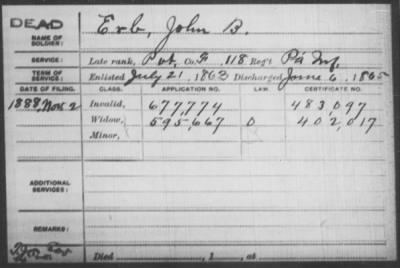 DEAD
NAME OF SOLDIER: Erb, John B.
SERVICE: Late rank, Pvt, Co. F, 118 Reg't Pa Inf.
TERM OF SERVICE: Enlisted July 21, 1863 Discharged June 6, 1865
DATE OF FILING. CLASS. APPLICATION NO. LAW. CERTIFICATE NO.
1888, Nov 2 Invalid, 677,774 483,097
Widow, 595,667 0 402,017
Minor,
ADDITIONAL SERVICES:
REMARKS:
Died , 1 , at